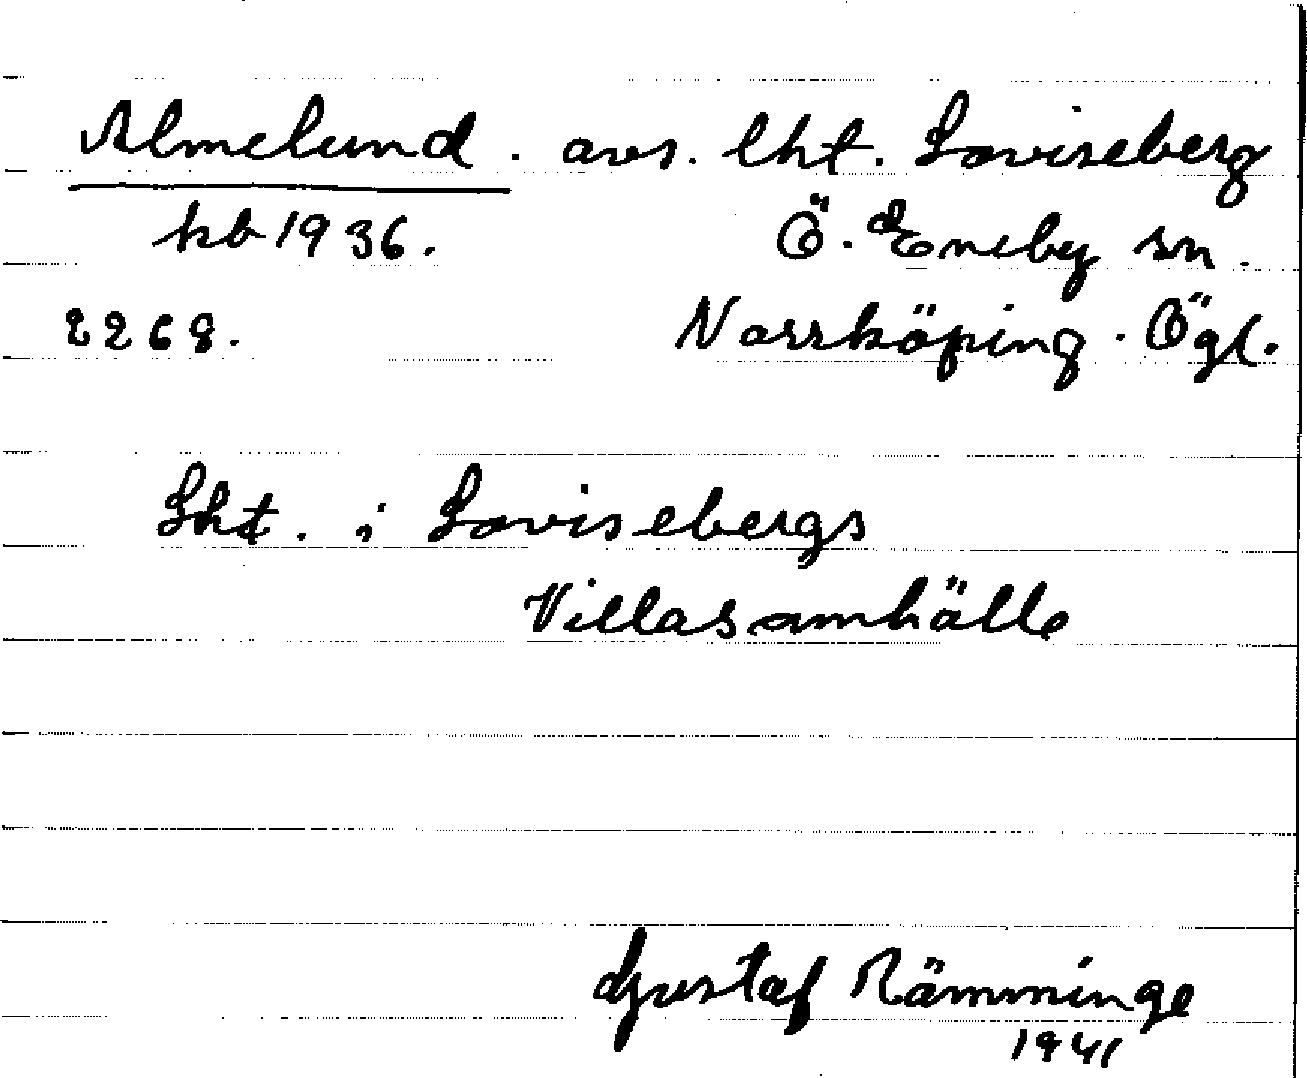 Almelund. avs. lht. Loviseberg
kb 1936. Ö. Eneby sn.
2268. Norrköping. Ögl.
Lht. i Lovisebergs
Villasamhälle
Gustaf Rämminge
1941